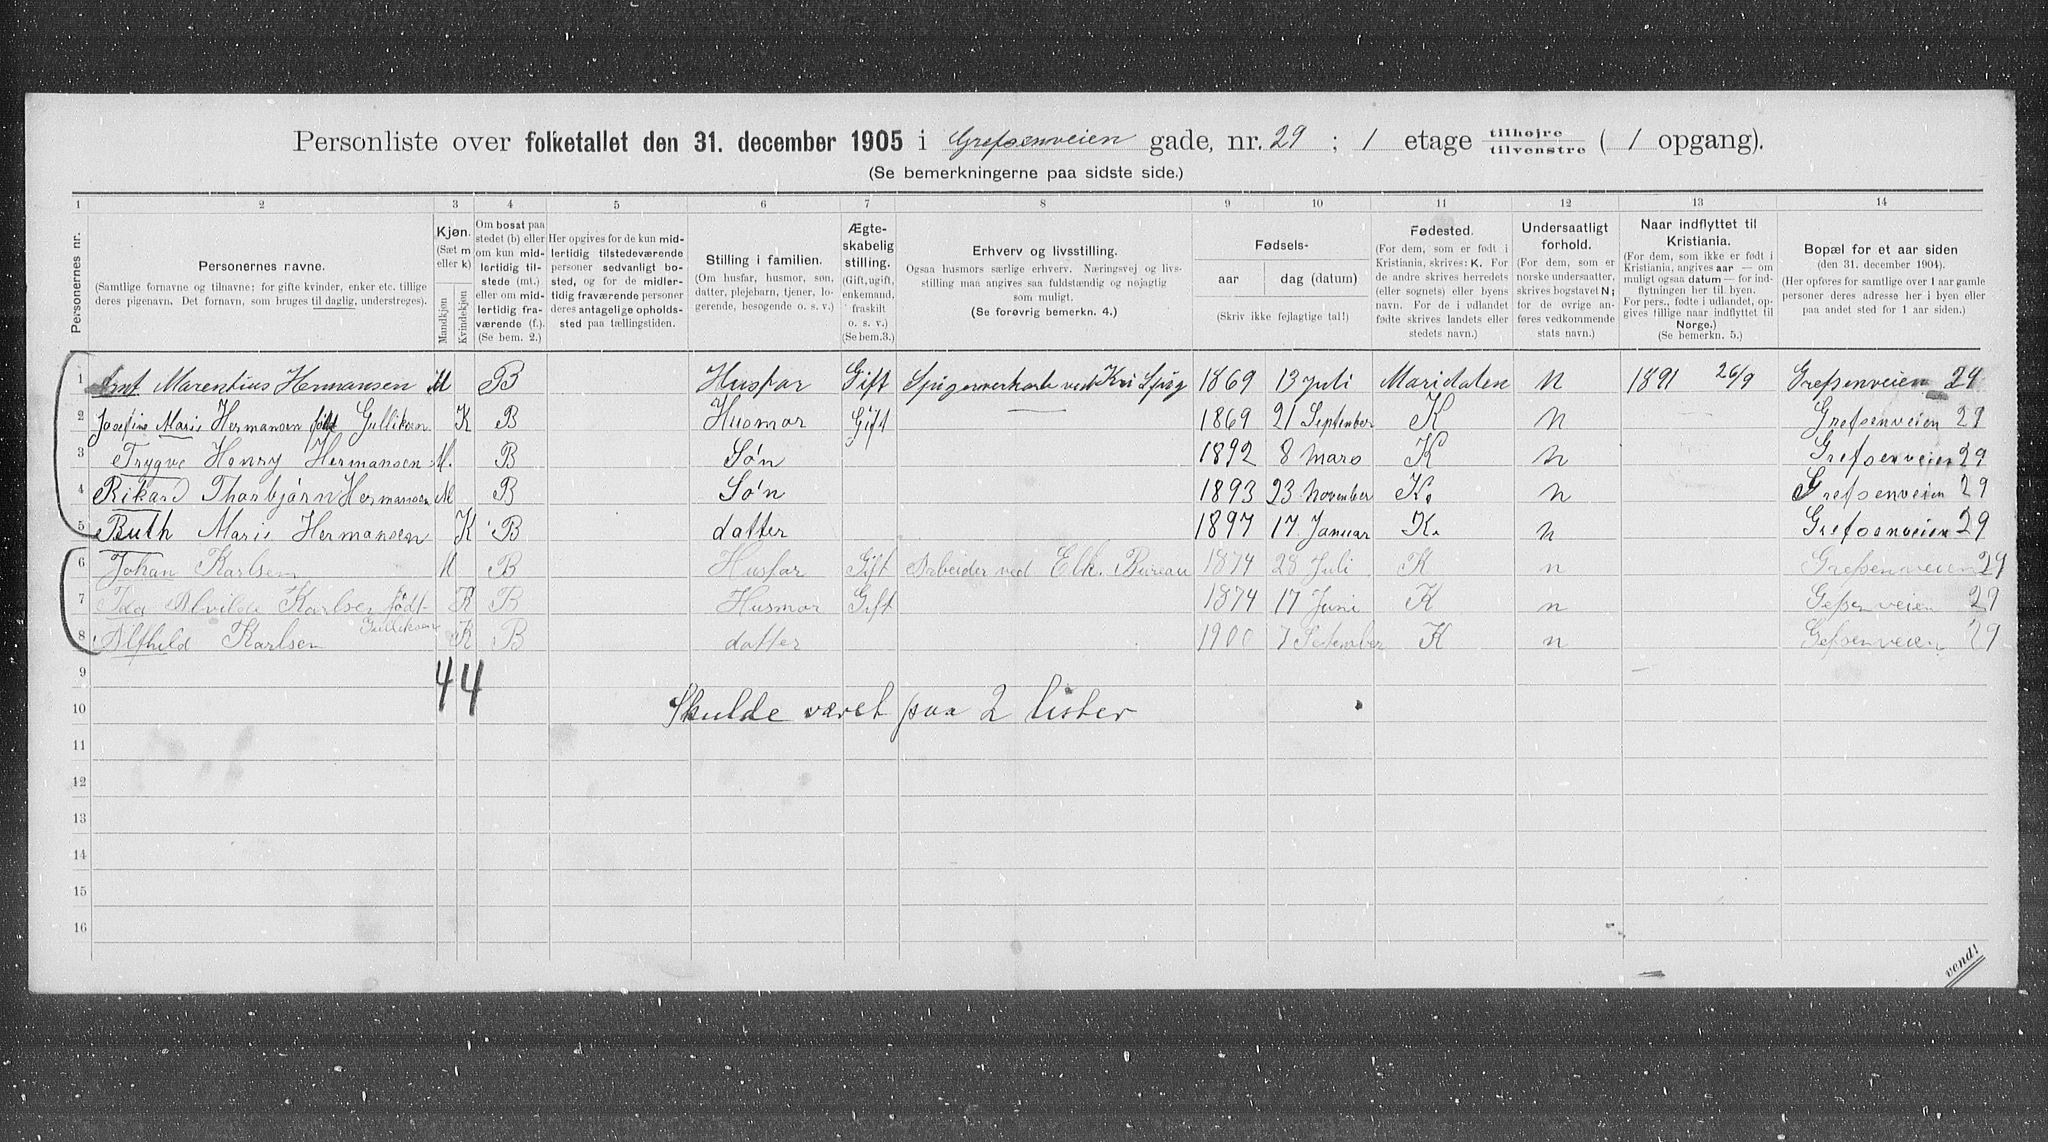 Personliste over folketallet den 31. december 1905 i Grefsenveien gade, nr. 29 ; 1 etage tilhøjre / tilvenstre ( 1 opgang).
(Se bemerkningerne paa sidste side.)
1 2 3 4 5 6 7 8 9 10 11 12 13 14
Personernes nr.
Personernes navne.
(Samtlige fornavne og tilnavne; for gifte kvinder, enker etc. tillige deres pigenavn. Det fornavn, som bruges til daglig, understreges).
Kjøn. (Sæt m eller k) Mandkjøn Kvindekjøn
Om bosat paa stedet (b) eller om kun midlertidig tilstede (mt.) eller om midlertidig fraværende (f.). (Se bem. 2.)
Her opgives for de kun midlertidig tilstedeværende personer sedvanligt bosted, og for de midlertidig fraværende personer deres antagelige opholdssted paa tællingstiden.
Stilling i familien. (Om husfar, husmor, søn, datter, plejebarn, tjener, logerende, besøgende o. s. v.)
Ægteskabelig stilling. (Gift, ugift, enkemand, fraskilt o. s. v.) (Se bem. 3.)
Erhverv og livsstilling. Ogsaa husmors særlige erhverv. Næringsvej og livsstilling maa angives saa fuldstændig og nøjagtig som muligt. (Se forøvrig bemerkn. 4.)
Fødsels- aar dag (datum) (Skriv ikke fejlagtige tal!)
Fødested. (For dem, som er født i Kristiania, skrives: K. For de andre skrives herredets (eller sognets) eller byens navn. For de i udlandet fødte skrives landets eller stedets navn.)
Undersaatligt forhold. (For dem, som er norske undersaatter, skrives bogstavet N; for de øvrige anføres vedkommende stats navn.)
Naar indflyttet til Kristiania. (For dem, som ikke er født i Kristiania, angives aar — om muligt ogsaa datum — for indflytningen her til byen. For pers., fødte i udlandet, opgives tillige naar indflyttet til Norge.) (Se bemerkn. 5.)
Bopæl for et aar siden (den 31. december 1904). (Her opføres for samtlige over 1 aar gamle personer deres adresse her i byen eller paa andet sted for 1 aar siden.)
1 Marentius Hermansen M B Husfar Gift 1869 13 juli Maridalen N 1891 26/9 Grefsenveien 29
2 Josefine Marie Hermansen født Gulliksen K B Husmor Gift 1869 21 September K N Grefsenveien 29
3 Trygve Henry Hermansen M. B Søn 1892 8 Mars K N Grefsenveien 29
4 Rikard Thorbjørn Hermansen M B Søn 1893 23 November K. N Grefsenveien 29
5 Ruth Marie Hermansen K B datter 1897 17 Januar K. N Grefsenveien 29
6 Johan Karlsen M B Husfar Gift Arbeider ved Elk. Bureau 1874 28 Juli K n Grefsenveien 29
7 Ida Alvilde Karlsen født Gulliksen K B Husmor Gift 1874 17 Juni K n Gefsenveien 29
8 Alfhild Karlsen K B datter 1900 7 September K n Gefsenveien 29
9 4 4
10 Skulde været paa 2 lister
11
12
13
14
15
16
vend!